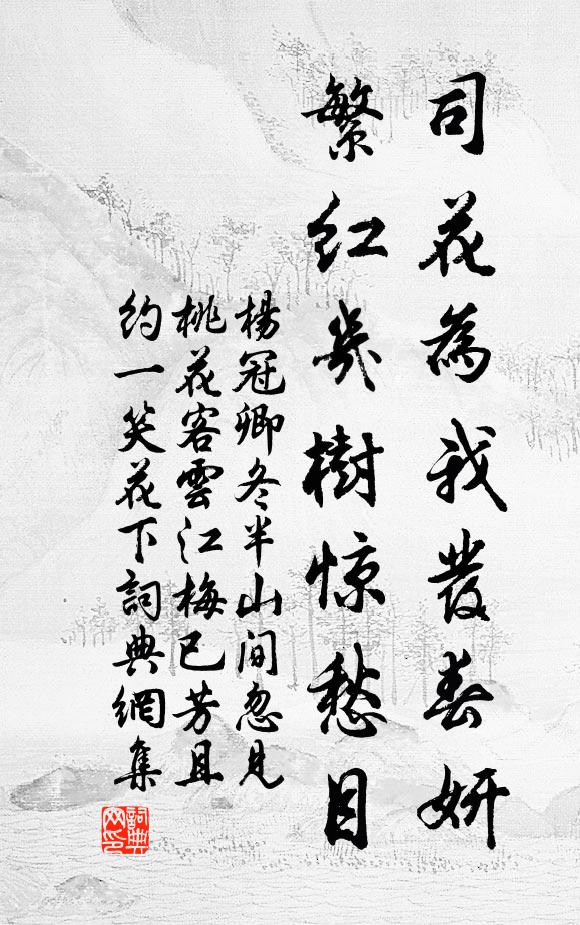 司花為我發春妍
繁紅幾樹惊愁目
楊冠卿冬半山間忽見
桃花客雲江梅已芳且
約一笑花下詞典網集
詞典网印